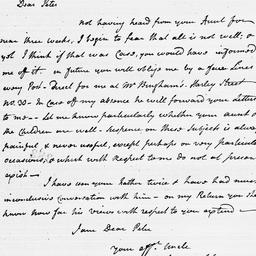 Dear Peter
not having heard from your Aunt for
near three weeks, I begin to fear that all is not well; or
yet I think if that was Case, you would have informed
me of it. in future you will oblige me by a few Lines
every Post. Direct for me at Mr Bingham's. Harley Street
no. 30. In Case of my absence he will forward your Letters
to me. Let me know particularly whether your Aunt &
the Children are well. suspence on these Subjects is always
painful, & never useful, except perhaps on very particular
occasions, & which with respect to me do not at present
exist.
I have seen your Father twice & have had
inconclusive Conversation with him. on my Return you shall
know his views with respect to you
I am Dear Peter
your affte. Uncle